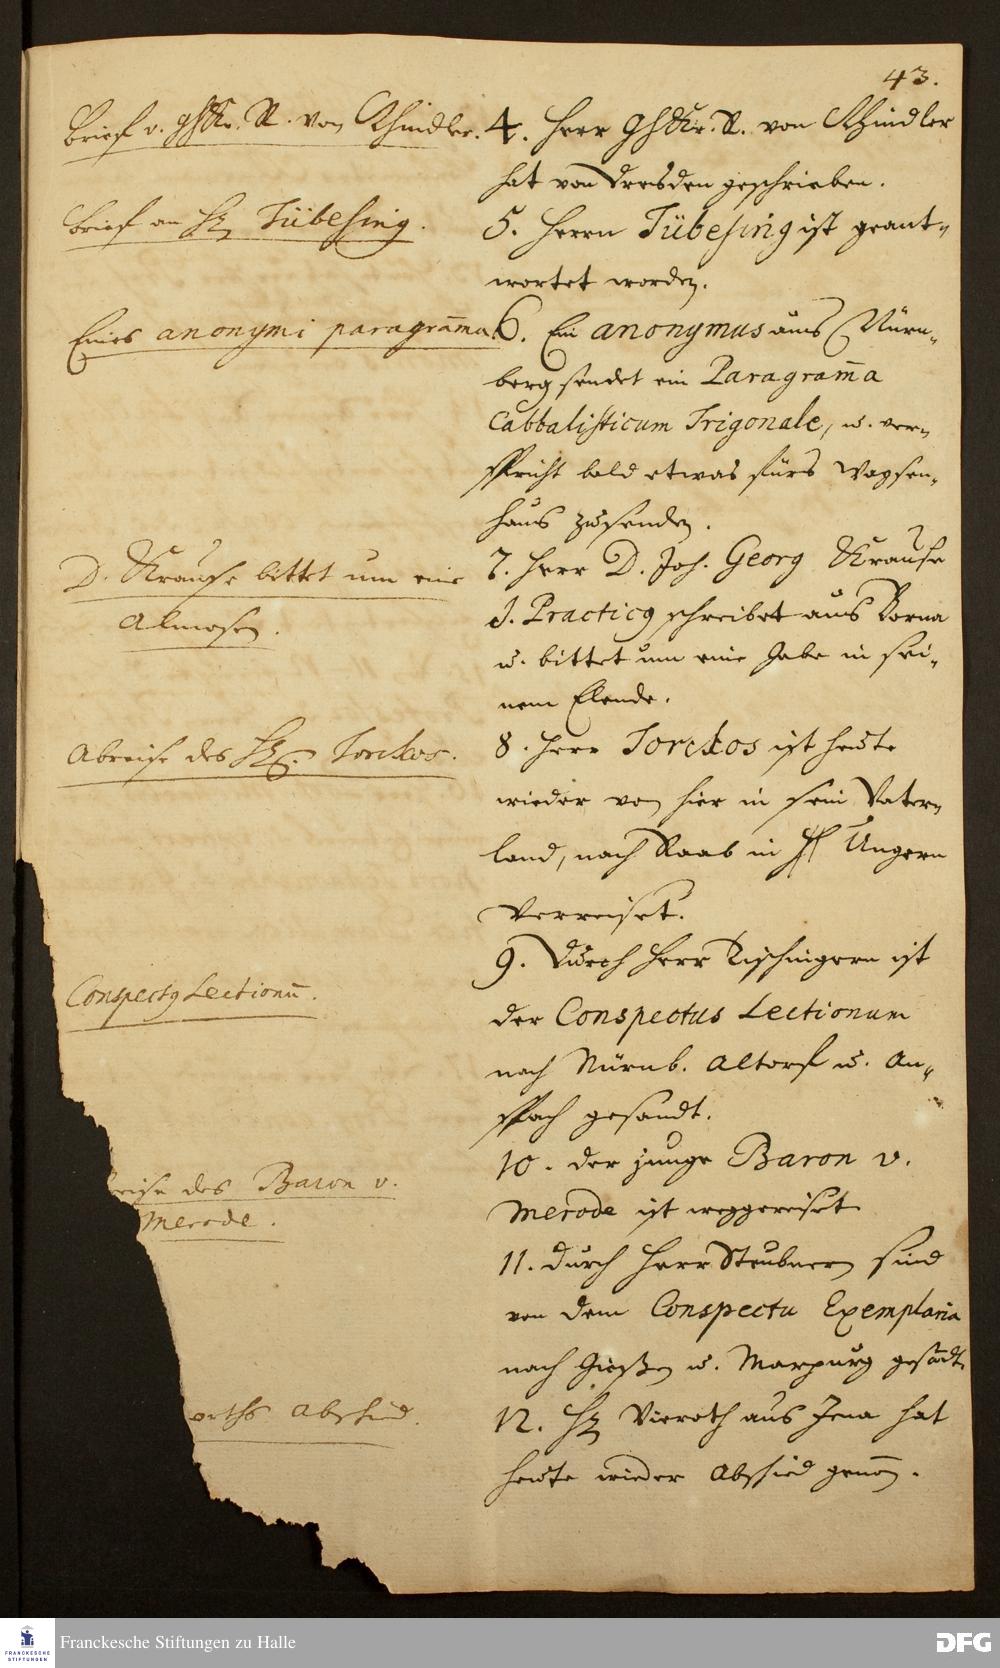 43.
Brief v. GhKr. R. von Schindler.
4. Herr GhKr. R. von Schindler
hat von Dresden geschrieben.
Brief an H. Tübesing.
5. Herrn Tübesing ist geant-
wortet worden.
Eines anonymi paragram̄a.
6. Ein anonymus aus Nürn-
berg sendet ein Paragram̄a
Cabbalisticum Trigonale, u. ver-
spricht bald etwas fürs Waysen-
haus zusenden.
D. Krause bittet um eine
Almosen.
7. Herr D. Joh. Georg Krause
J. Practicus schreibet aus Borna
u. bittet um eine Gabe in sei-
nem Elende.
Abreise des H. Torckos.
8. Herr Torckos ist heute
wieder von hier in sein Vater-
land, nach Raab in Ungern
verreiset.
Conspectus Lectionū.
9. Durch Herr Tischingern ist
der Conspectus Lectionum
nach Nürnb. Altorf u. An-
spach gesandt.
reise des Baron v.
Merode.
10. der junge Baron v.
Merode ist weggereiset
11. durch Herr Steubnern sind
von dem Conspectu Exemplaria
nach Gießen u. Marpurg gesādt
oroths Abschied.
12. H. Vieroth aus Jena hat
heute wieder Abschied genom̄.
Franckesche Stiftungen zu Halle
FRANCKESCHE
STIFTUNGEN
DFG